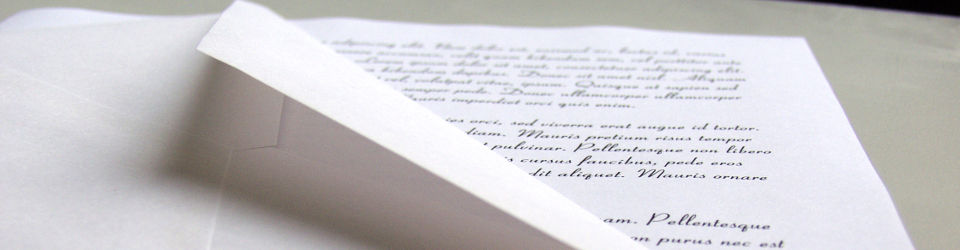 adipiscing elit. Nunc dolor
vel porttitor
dolor sit amet, consectetuer adipiscing elit.
bibendum dapibus. Donec sit amet nisl. Aliquam
vel, volutpat vitae, ipsum. Quisque at sapien sed
semper pede. Donec ullamcorper ullamcorper
Mauris imperdiet orci quis enim.
orci, sed viverra erat augue id tortor.
diam. Mauris pretium risus tempor
pulvinar. Pellentesque non libero
cursus faucibus, pede eros
aliquet. Mauris ornare
Pellentesque
purus nec est